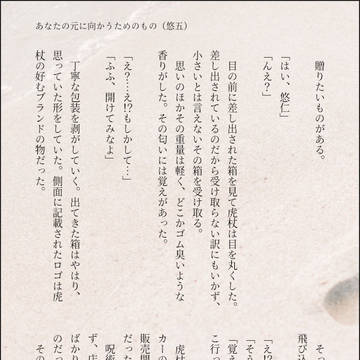 あなたの元に向かうためのもの（悠五）
贈りたいものがある。
「はい、悠仁」
「んえ？」
目の前に差し出された箱を見て虎杖は目を丸くした。
差し出されているのだから受け取らない訳にもいかず、
小さいとは言えないその箱を受け取る。
思いのほかその重量は軽く、どこかゴム臭いような
香りがした。その匂いには覚えがあった。
「え？…え!?もしかして…」
「ふふ、開けてみなよ」
丁寧な包装を剥がしていく。出てきた箱はやはり、
思っていた形をしていた。側面に記載されたロゴは虎
杖の好むブランドの物だった。
そっ
飛び込
「え!?
「そう
「覚え
こ行っ
虎杖
カーの
販売開
だった
呪術
ず、店
ばかり
のだっ
その